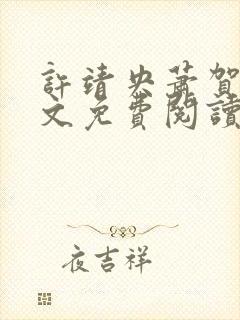 許靖央蕭賀
文免費閱讀
夜吉祥